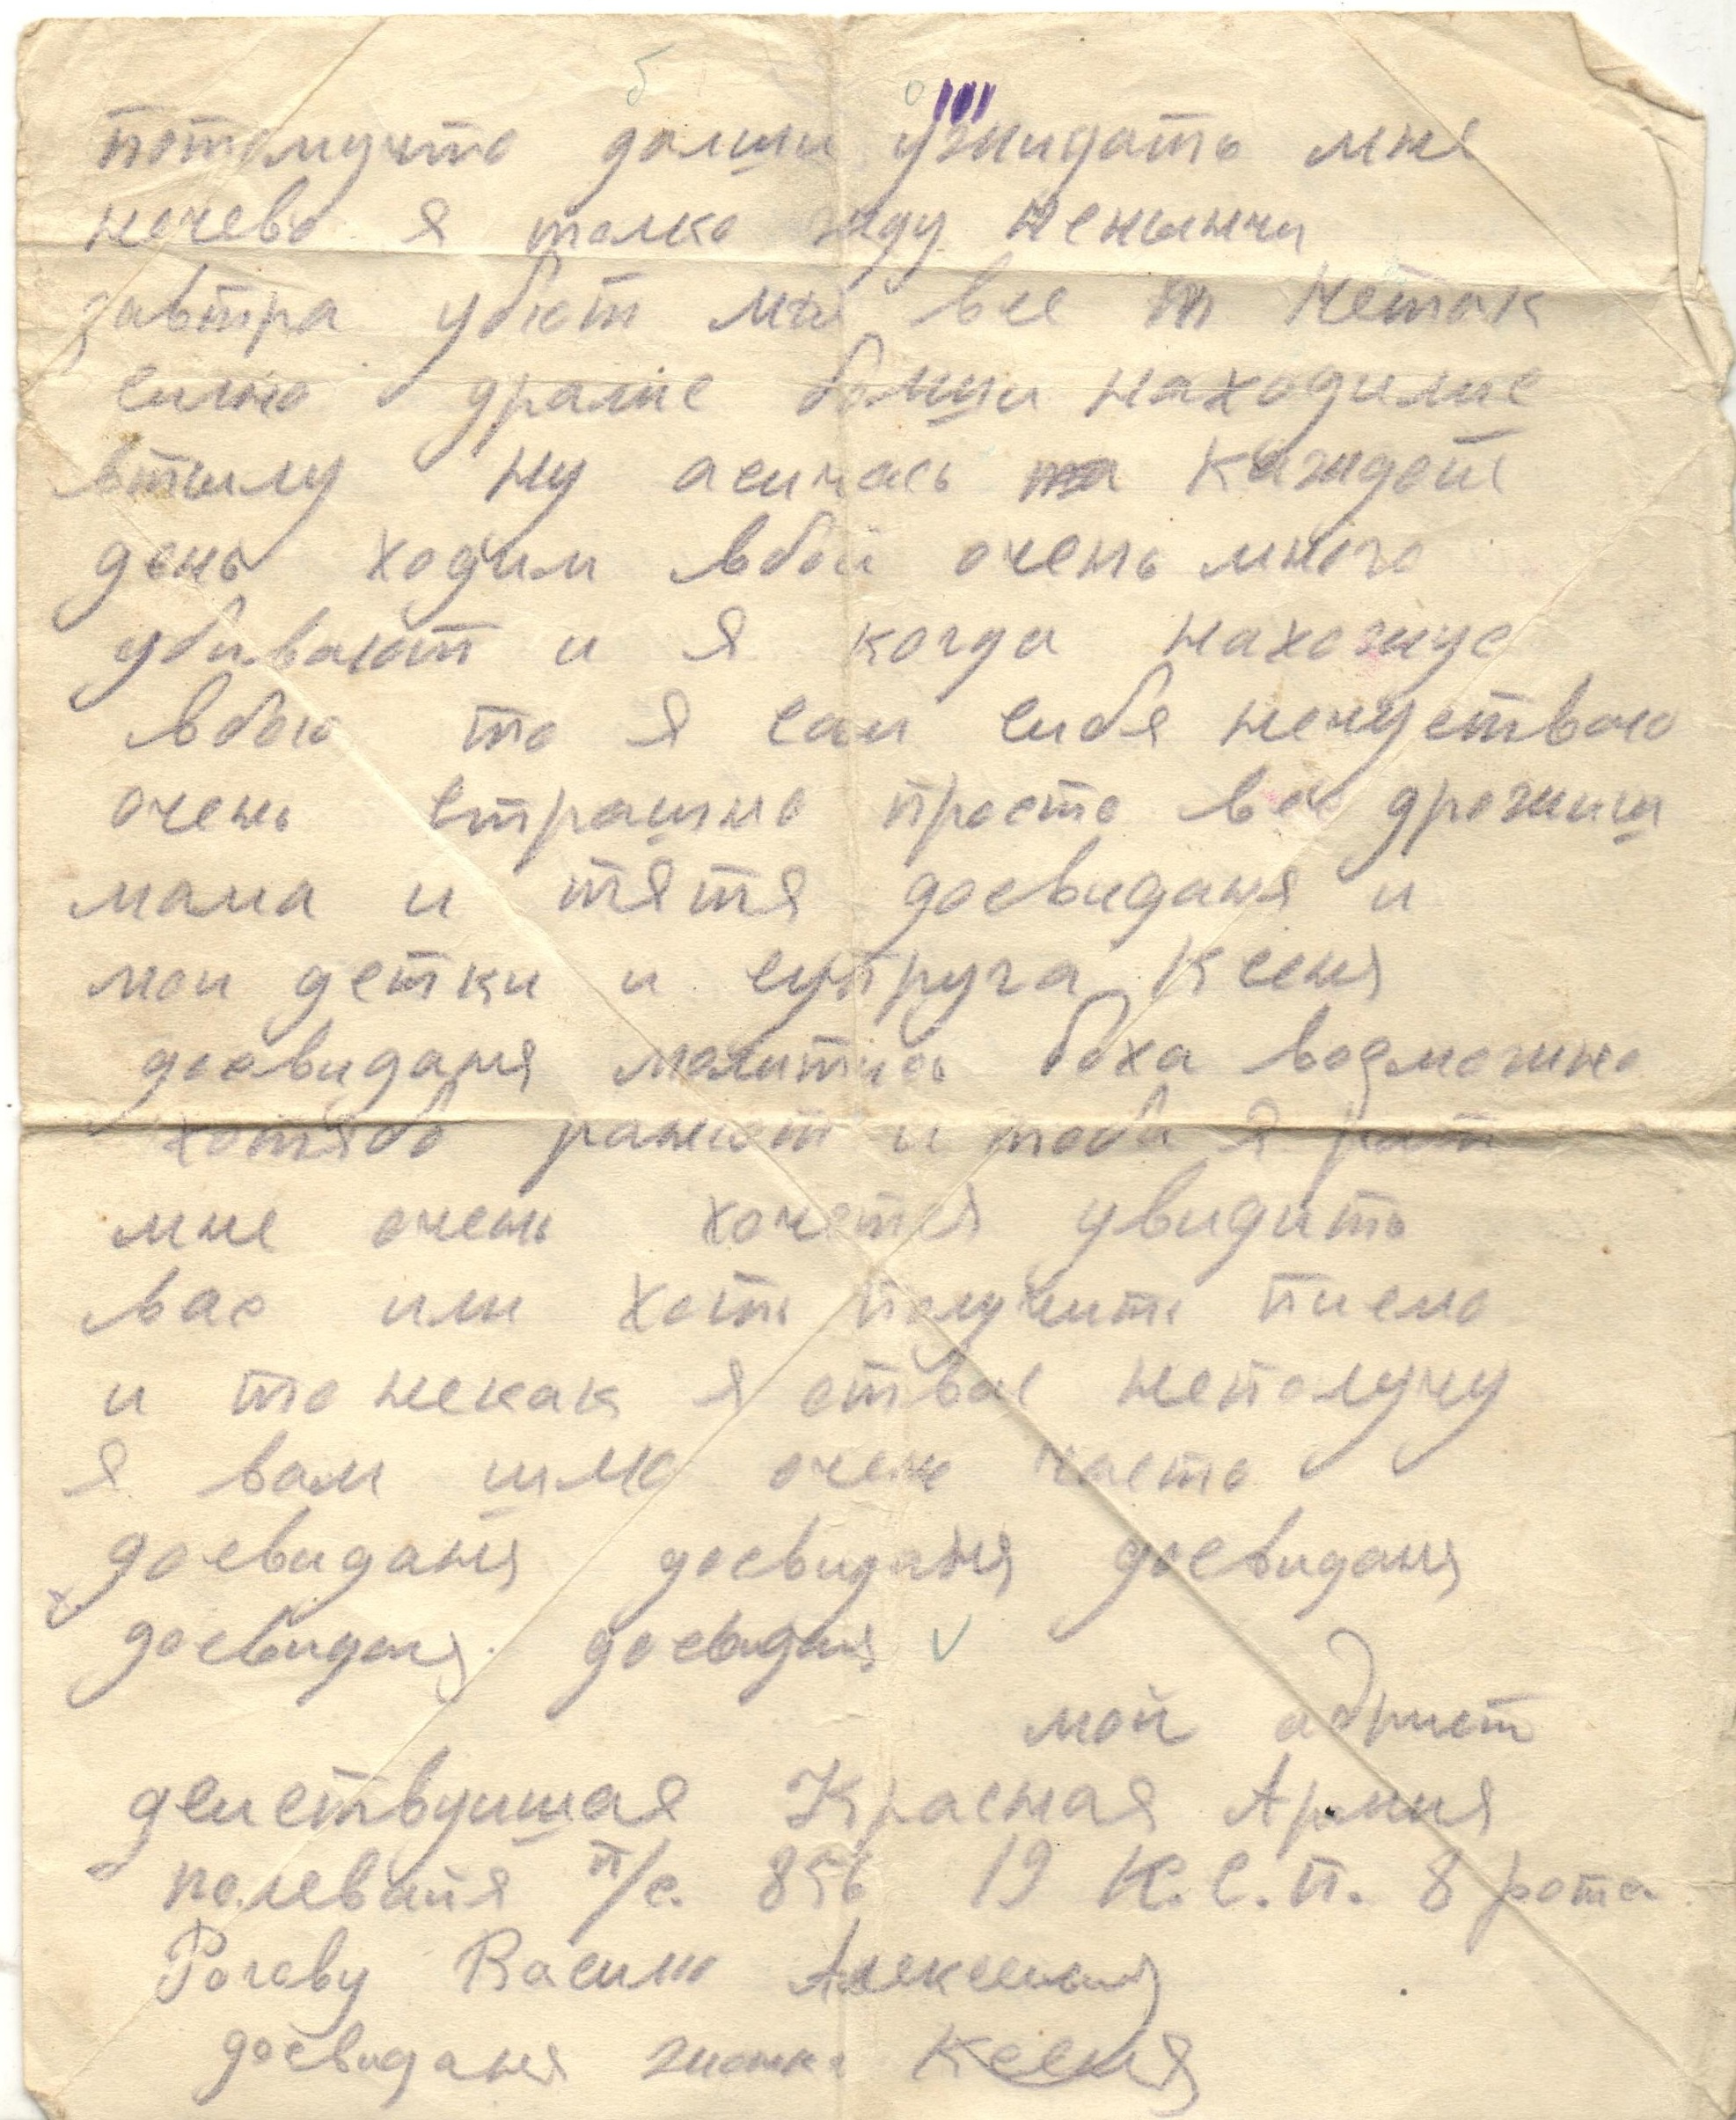 потомучто долши ужидать мне
нечево я толко жду неньичи
завтра убют мы все нетак
силно дралис болши находилис
втылу ну асичась каждой
день ходим вбой очень много
убивают и я когда нахожус
вбою то я сам сибя нечуствою
очень страшно просто все дрожиш
мама и тятя досвиданя и
мои детки и супруга Ксеня
досвиданя молитись боха возможно
хотябо ранют и тово я рат
мне очень хочется увидить
вас или хоть получить писмо
и то некак я отвас неполучу
я вам шлю очен часто
досвиданя досвиданя досвиданя
досвиданя досвиданя
мой адрист
деиствуишая Красная Армия
полевайя п/с. 856 19 К.С.П. 8 рота
Рочеву Василю Алексеивич
досвиданя жонка Ксеня